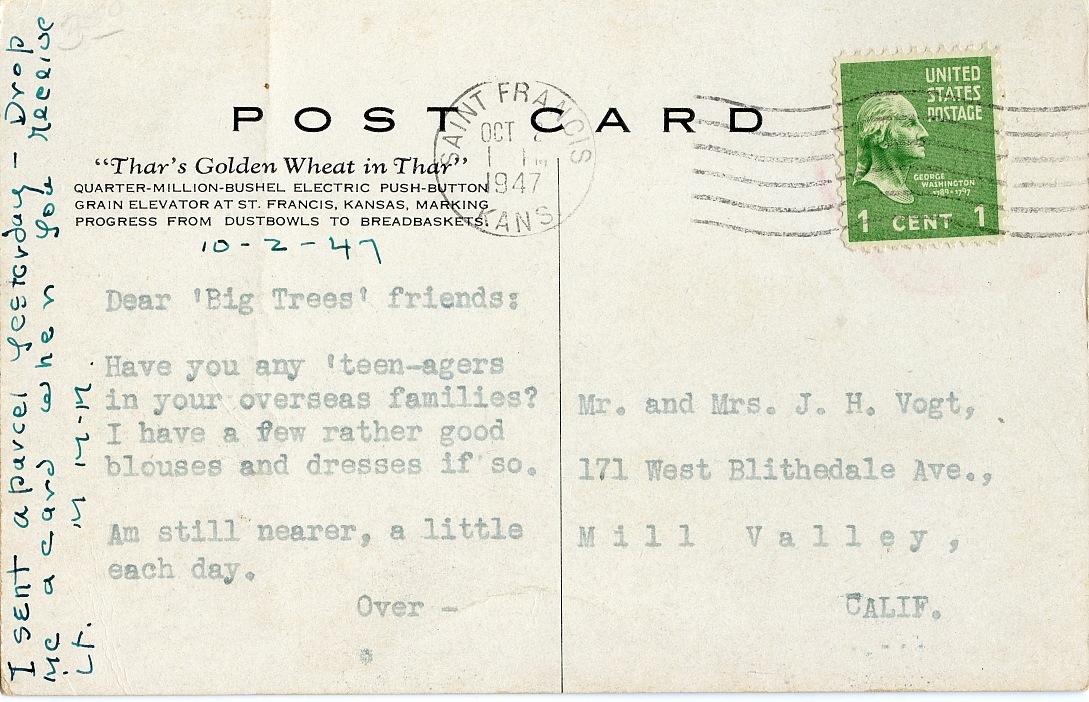 POST CARD
"Thar's Golden Wheat in Thar"
QUARTER-MILLION-BUSHEL ELECTRIC PUSH-BUTTON
GRAIN ELEVATOR AT ST. FRANCIS, KANSAS, MARKING
PROGRESS FROM DUSTBOWLS TO BREADBASKETS.
10-2-47
SAINT FRANCIS
OCT
1947
KANS.
UNITED
STATES
POSTAGE
GEORGE
WASHINGTON
1789-1797
1 CENT 1
Dear 'Big Trees' friends:
Have you any 'teen-agers
in your overseas families?
I have a few rather good
blouses and dresses if so.
Am still nearer, a little
each day.
Over -
Mr. and Mrs. J. H. Vogt,
171 West Blithedale Ave.,
Mill Valley,
CALIF.
I sent a parcel yesterday - Drop
me a card when you receive
it.